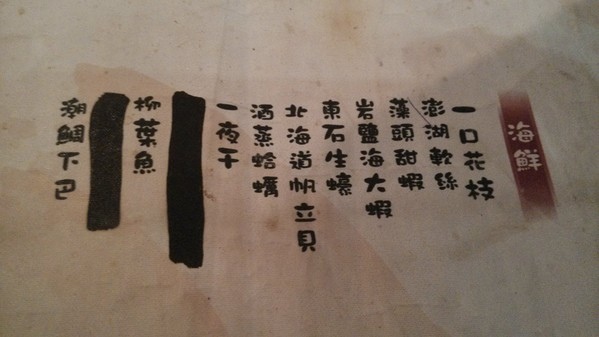 海鮮
一口花枝
澎湖軟絲
藻頭甜蝦
岩鹽海大蝦
東石生蠔
北海道帆立貝
酒蒸蛤蠣
一夜干
柳葉魚
潮鯛下巴